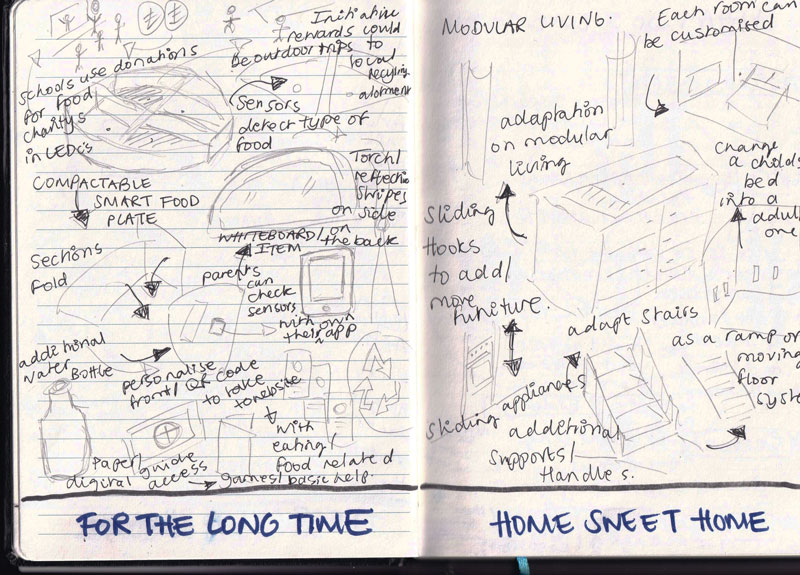 Initiative
rewards could
be outdoor trips to
local
recycling
alotment
schools use donations
for food
charitys
in LEDC's
sensors
detect type of
food
COMPACTABLE
SMART FOOD
PLATE
Torch/
reflective
stripes
on side
WHITEBOARD/ on
ITEM the back
Sections
fold
parents
can
check
sensors
with own
their app
additional
water
Bottle
personalise
front/ QR code
to take
to website
with
eating/
food related
games/ basic help
Paper/ guide
digital access
FOR THE LONG TIME
MODULAR LIVING.
Each room can
be customised
adaptation
on modular
living
change
a childs
bed
into a
adult
one
Sliding
Hooks
to add/
more
furniture.
adapt stairs
as a ramp or
moving
floor
syste
Sliding appliances
additional
supports/
Handles.
HOME SWEET HOME